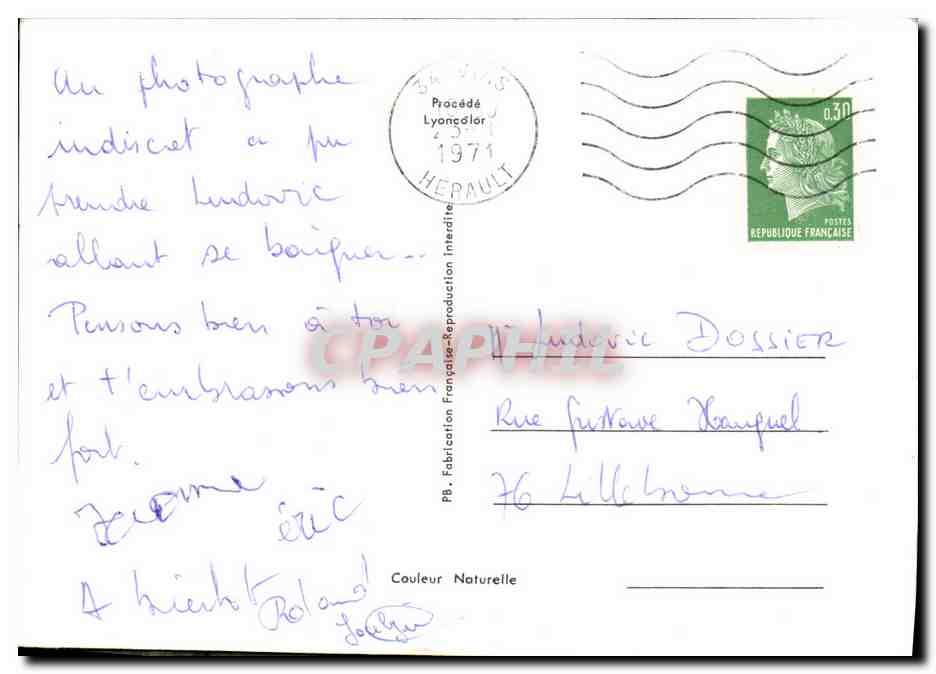 Un photographe
indiscret a pu
prendre Ludovic
allant se baigner...
Pensons bien à toi
et t'embrassons bien
fort.
Jerome
éric
A bientôt Roland
34 VIAS
1971
HERAULT
Procédé
Lyoncolor
0,30
POSTES
REPUBLIQUE FRANÇAISE
PB. Fabrication Française-Reproduction interdite
CPAPHIL
Ludovic DOSSIER
Rue Gustave
76 Lillebonne
Couleur Naturelle